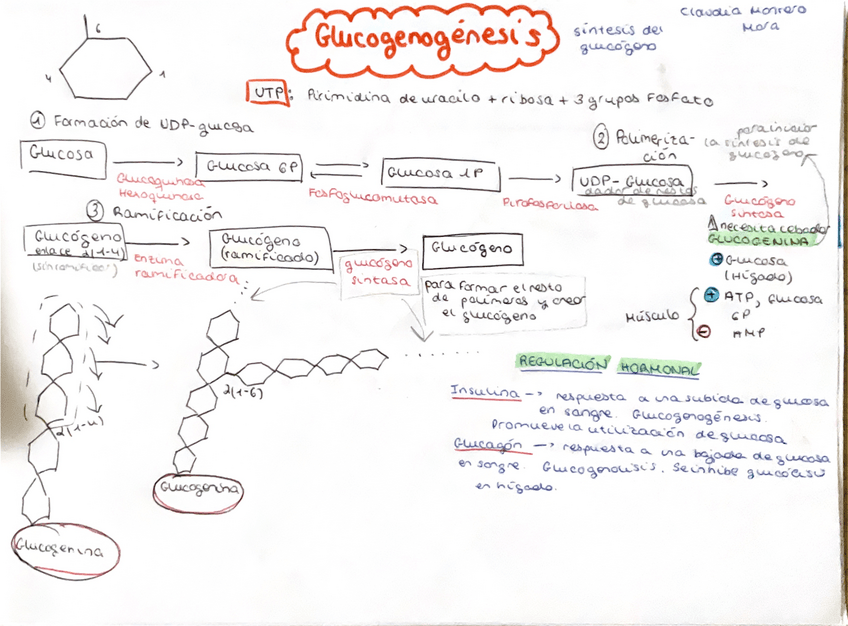 Glucogenogénesis
síntesis del
glucógeno
Claudia Montero
Mora
6
4
1
UTP: Pirimidina de uracilo + ribosa + 3 grupos fosfato
① Formación de UDP-glucosa
Glucosa
Glucoquinasa
Hexoquinasa
Glucosa 6P
Fosfoglucomutasa
Glucosa 1P
Pirofosforilasa
② Polimeriza-
ción
UDP-Glucosa
dador de restos
de glucosa
para iniciar
la síntesis de
glucógeno
Glucógeno
sintasa
necesita cebador
GLUCOGENINA
⊕ Glucosa
(Hígado)
Músculo
⊕ ATP, Glucosa
6P
⊖ AMP
③ Ramificación
Glucógeno
enlace α(1-4)
(sin ramificar)
enzima
ramificadora
Glucógeno
(ramificado)
glucógeno
sintasa
Glucógeno
para formar el resto
de polímeros y crear
el glucógeno
α(1-4)
Glucogenina
α(1-6)
Glucogenina
REGULACIÓN HORMONAL
Insulina → respuesta a una subida de glucosa
en sangre. Glucogenogénesis.
Promueve la utilización de glucosa
Glucagón → respuesta a una bajada de glucosa
en sangre. Glucogenolisis. Se inhibe glucólisis
en hígado.